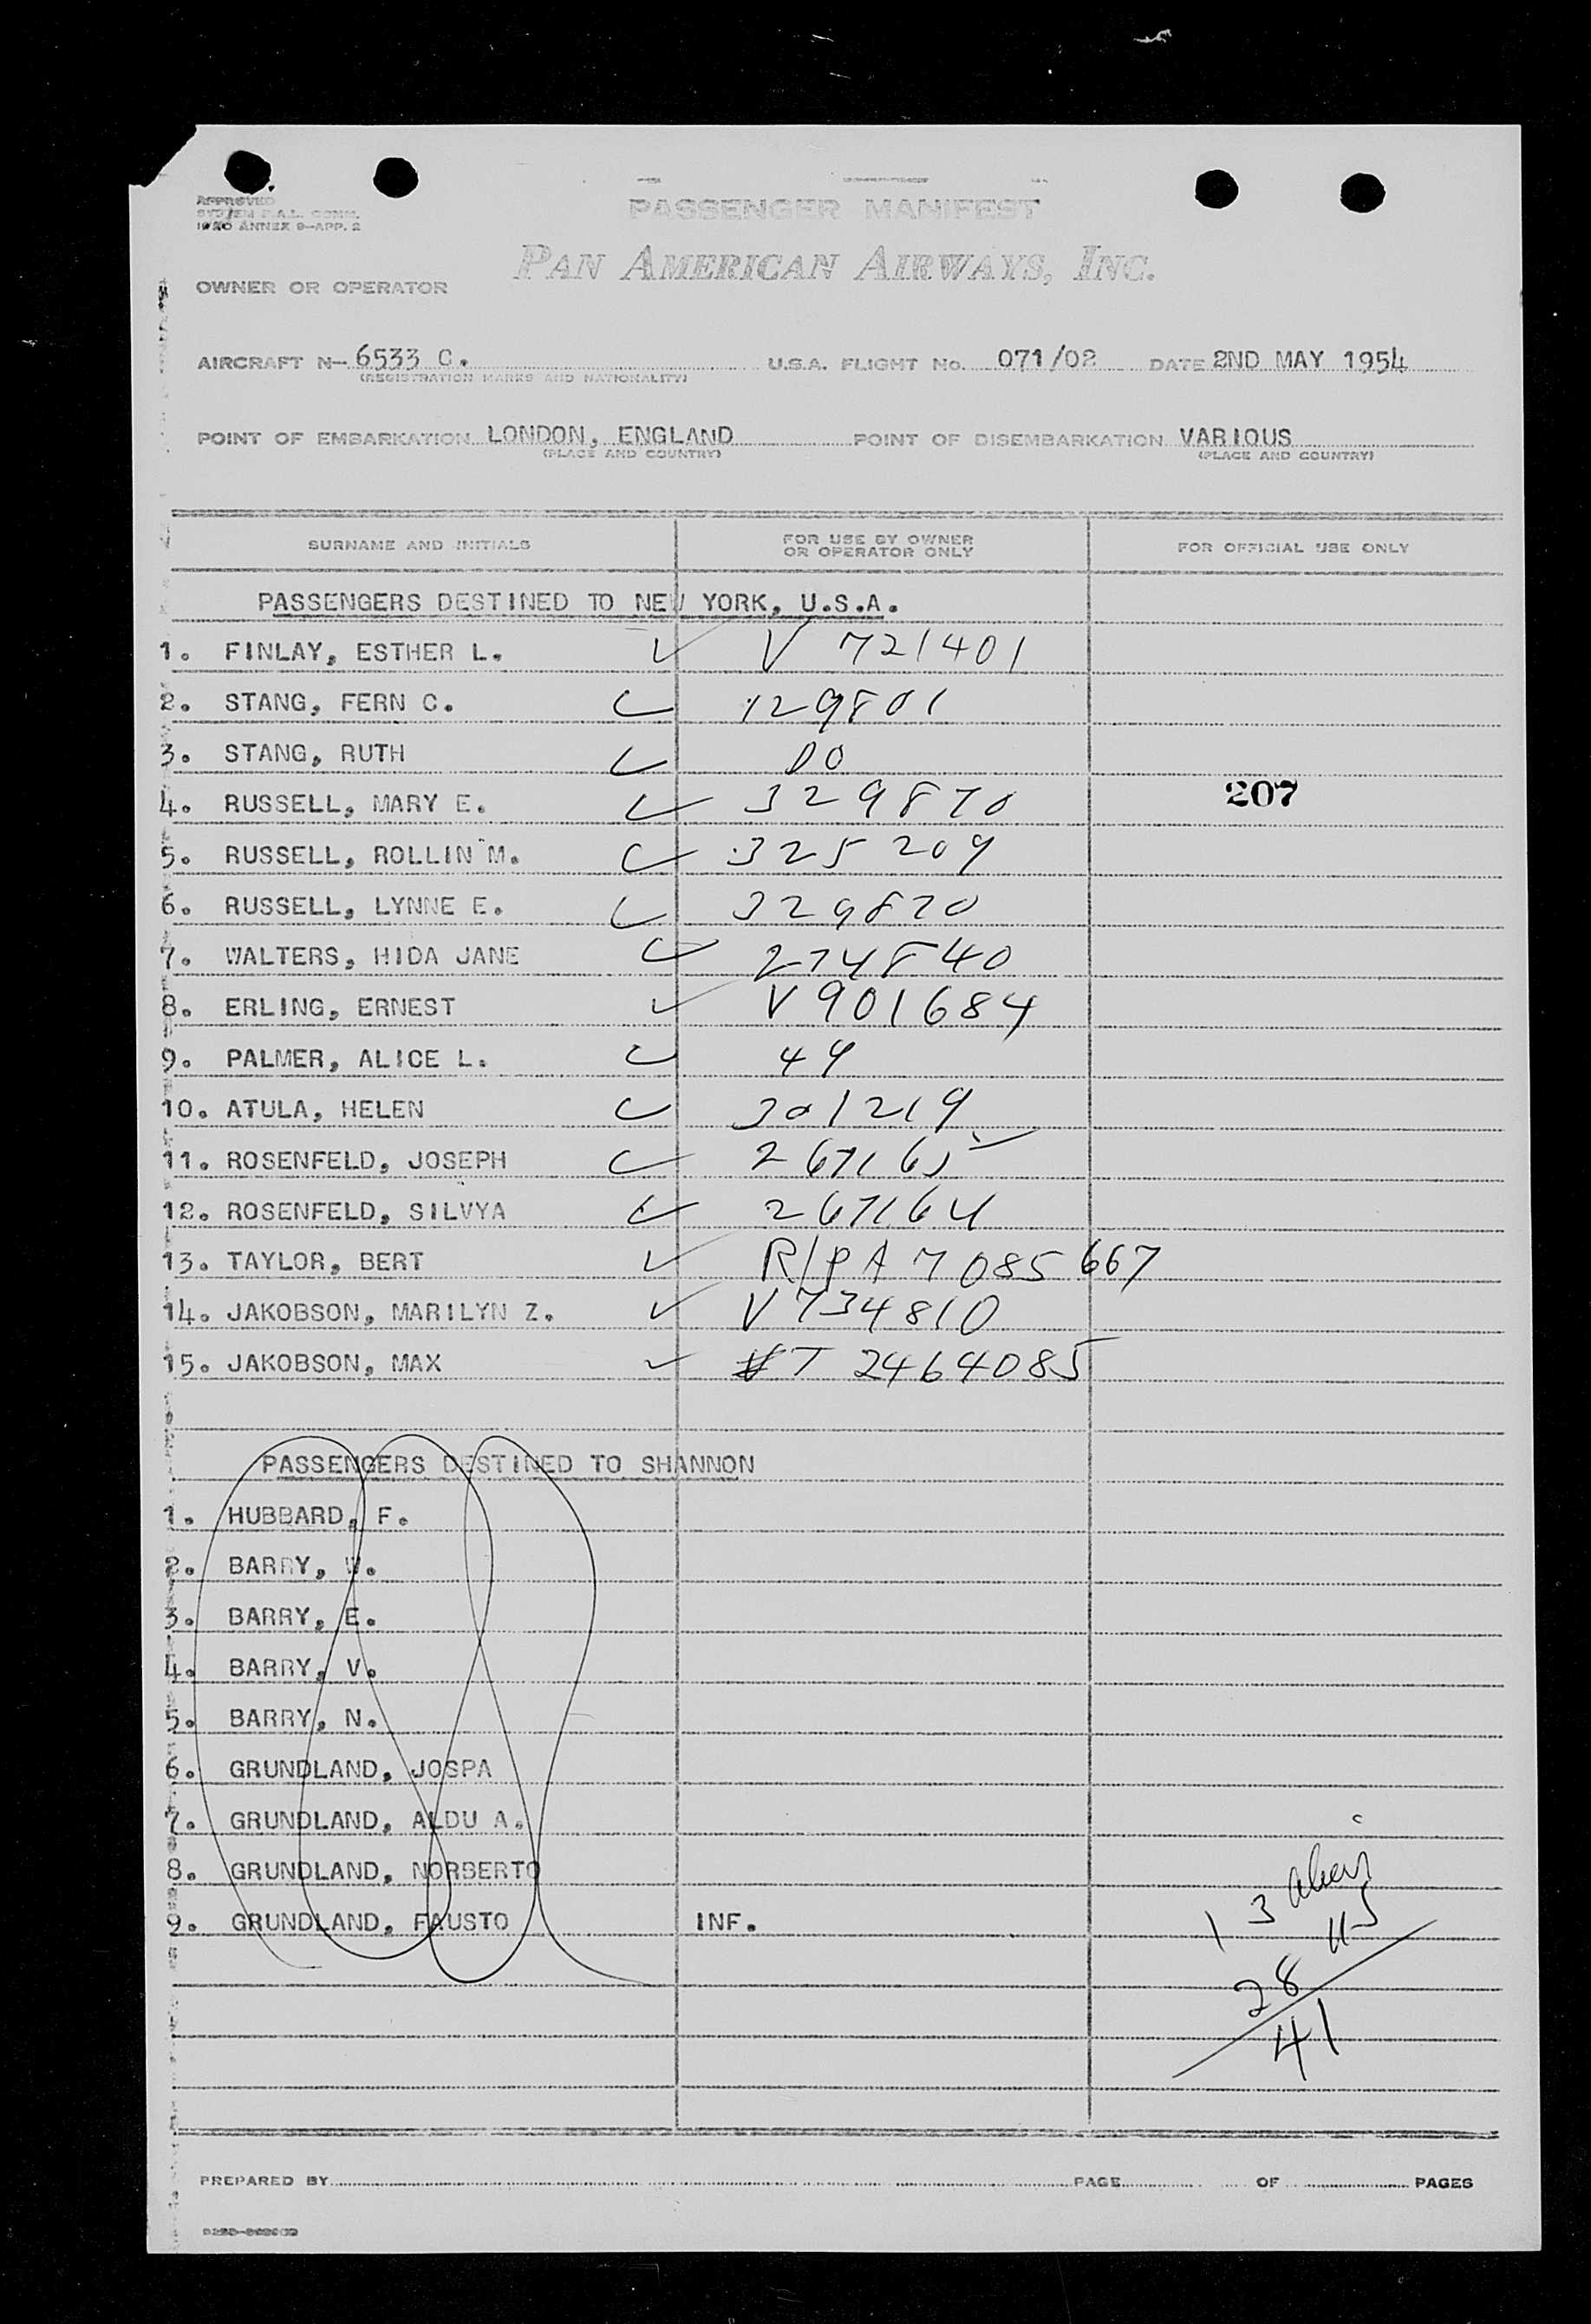 APPROVED
SYSTEM F.A.L. COMM.
ICAO ANNEX 9-APP. 2
PASSENGER MANIFEST
PAN AMERICAN AIRWAYS, INC.
OWNER OR OPERATOR
AIRCRAFT N- 6533 C. U.S.A. FLIGHT No. 071/02 DATE 2ND MAY 1954
(REGISTRATION MARKS AND NATIONALITY)
POINT OF EMBARKATION LONDON, ENGLAND POINT OF DISEMBARKATION VARIOUS
(PLACE AND COUNTRY) (PLACE AND COUNTRY)
SURNAME AND INITIALS FOR USE BY OWNER OR OPERATOR ONLY FOR OFFICIAL USE ONLY
PASSENGERS DESTINED TO NEW YORK, U.S.A.
1. FINLAY, ESTHER L. V 721401
2. STANG, FERN C. 129801
3. STANG, RUTH DO
4. RUSSELL, MARY E. 329870 207
5. RUSSELL, ROLLIN M. 325209
6. RUSSELL, LYNNE E. 329870
7. WALTERS, HIDA JANE 274840
8. ERLING, ERNEST V 901684
9. PALMER, ALICE L. 49
10. ATULA, HELEN 301219
11. ROSENFELD, JOSEPH 267165
12. ROSENFELD, SILVYA 267164
13. TAYLOR, BERT R/P A 7 085 667
14. JAKOBSON, MARILYN Z. V 734810
15. JAKOBSON, MAX #T 2464085
PASSENGERS DESTINED TO SHANNON
1. HUBBARD, F.
2. BARRY, W.
3. BARRY, E.
4. BARRY, V.
5. BARRY, N.
6. GRUNDLAND, JOSPA
7. GRUNDLAND, ALDU A.
8. GRUNDLAND, NORBERTO
9. GRUNDLAND, FAUSTO INF.
13 alien
28 US
41
PREPARED BY PAGE OF PAGES